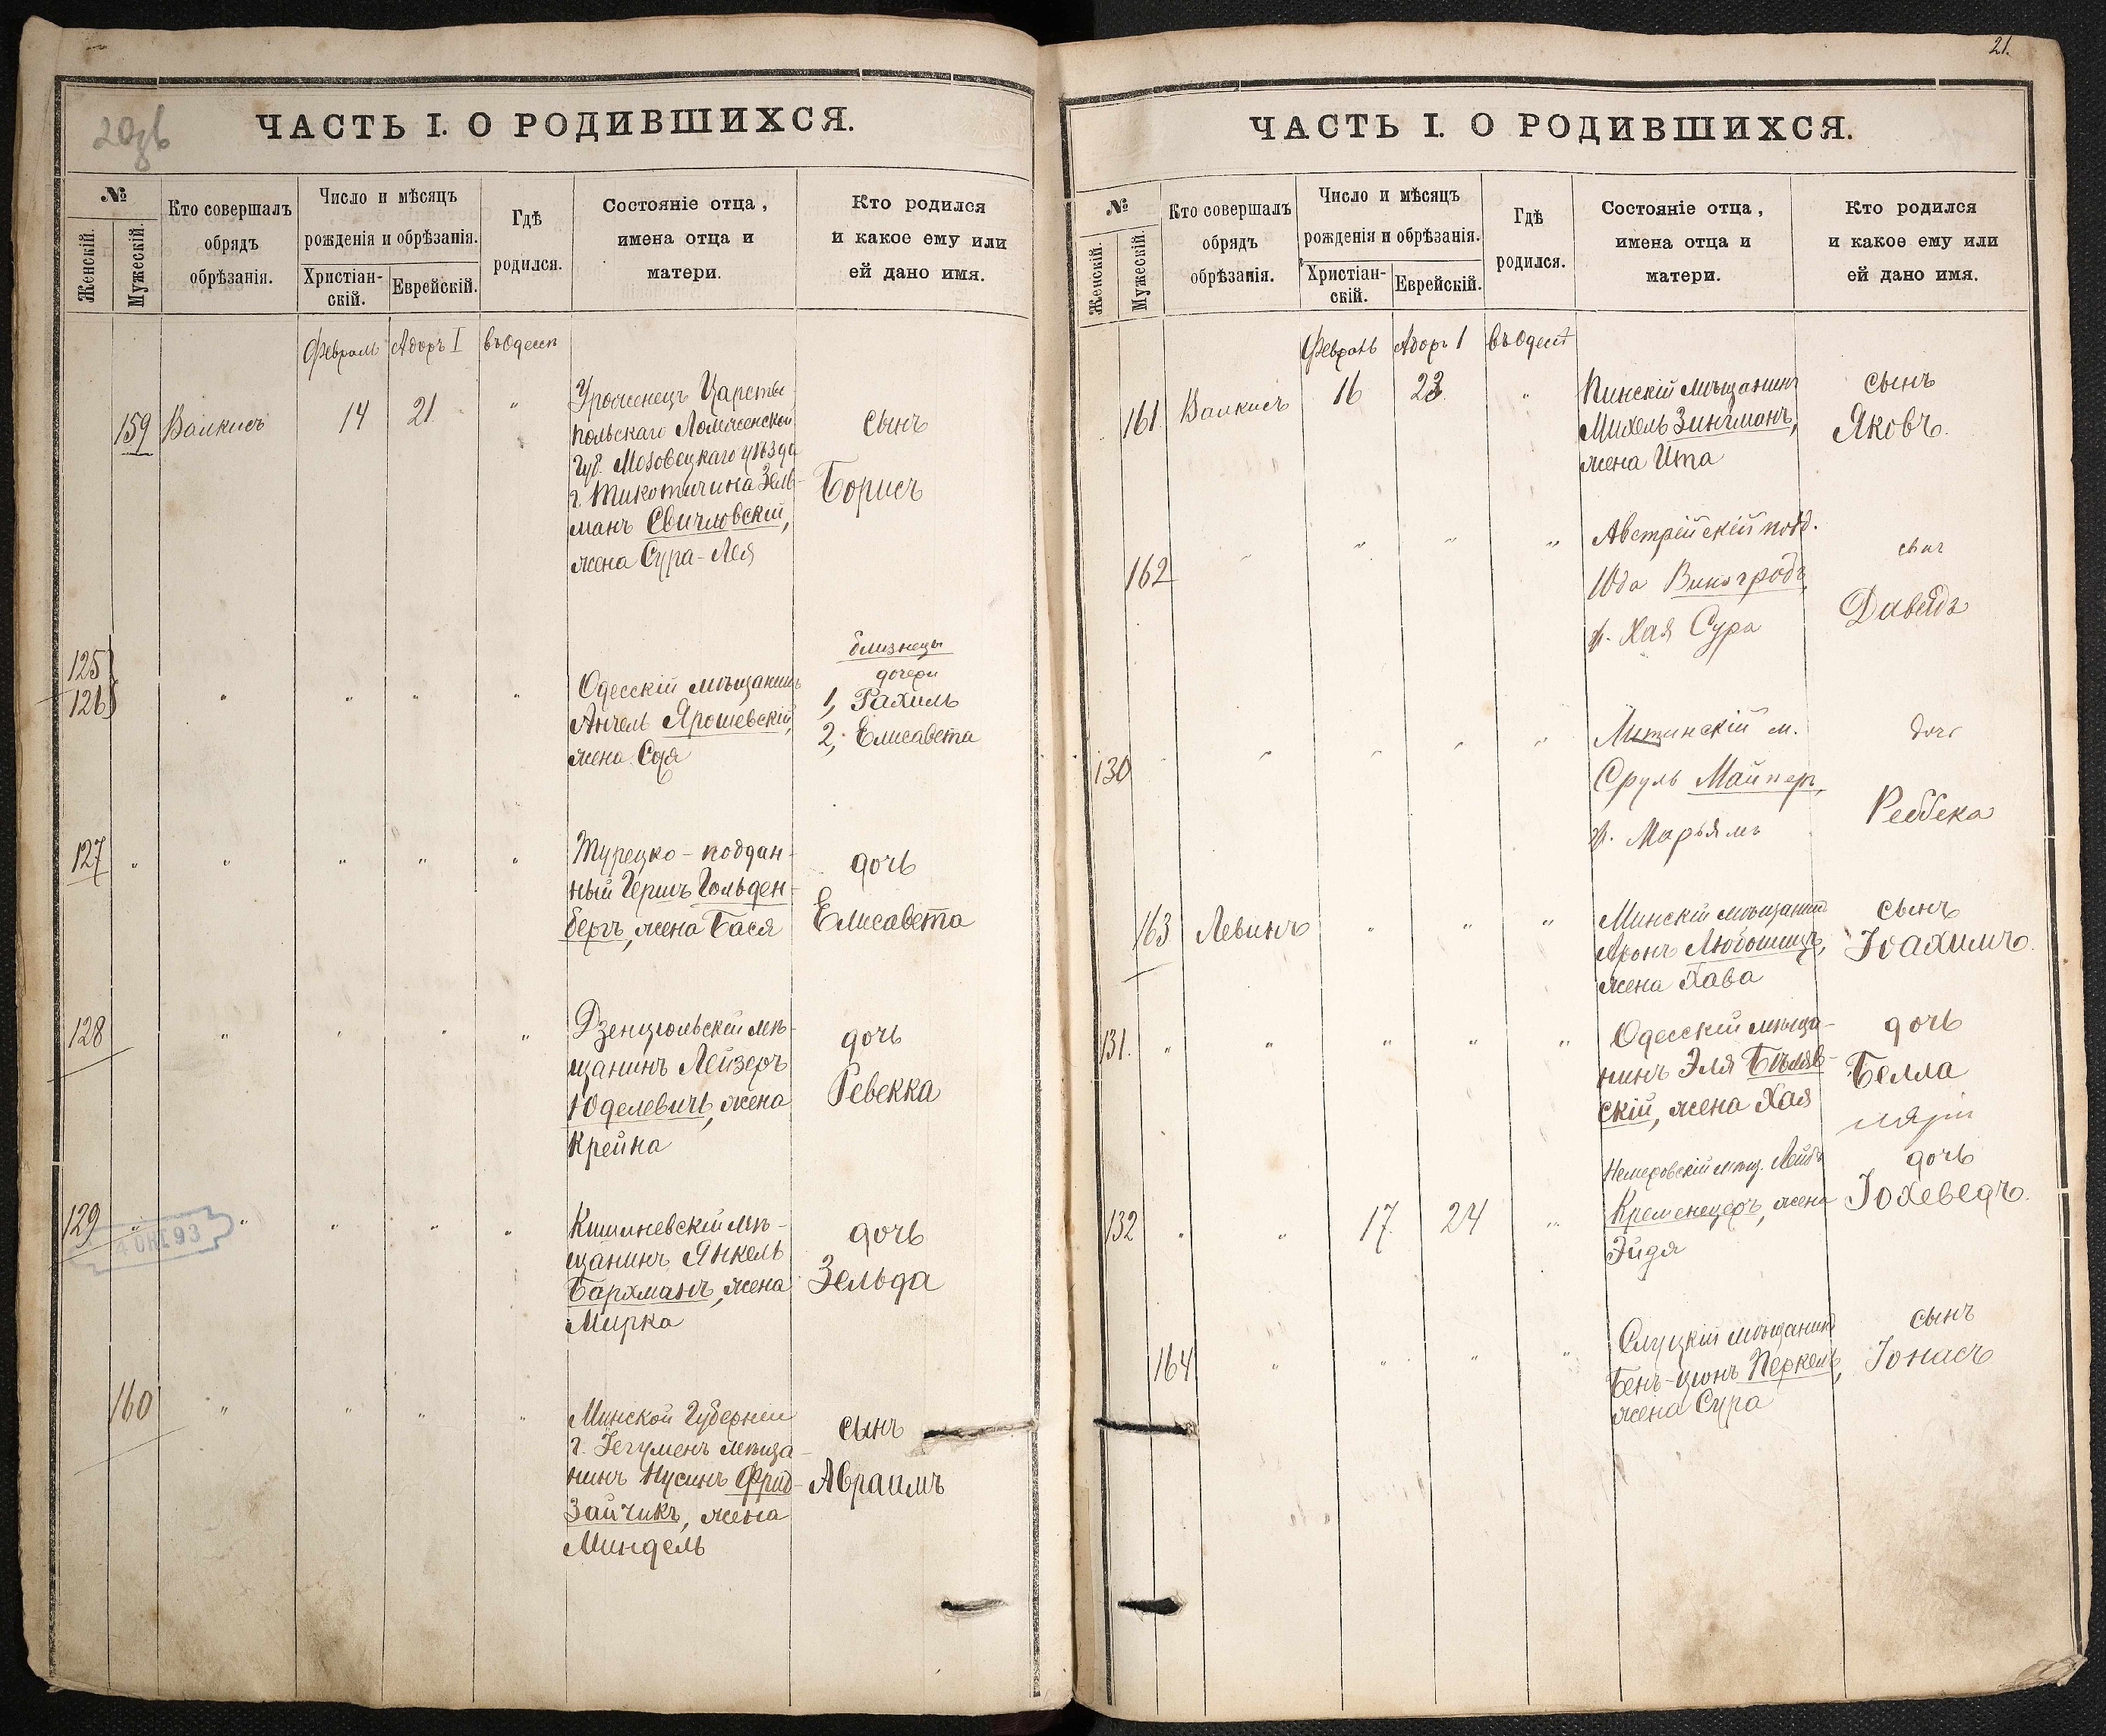 ЧАСТЬ I. О РОДИВШИХСЯ.
№
Женскій.
Мужескій.
Кто совершалъ
обрядъ
обрѣзанія.
Число и мѣсяцъ
рожденія и обрѣзанія.
Христіан-
скій.
Еврейскій.
Гдѣ
родился.
Состояніе отца,
имена отца и
матери.
Кто родился
и какое ему или
ей дано имя.
Февраль Адоръ I въ Одессѣ
159 Валкисъ 14 21 "
Уроженецъ Царства
польскаго Ломженской
Губ. Мазовецкаго уѣзда
г. Тикотичина Зель-
манъ Свичловскій,
жена Сура-Лея
сынъ
Борисъ
125
126
" " " "
Одесскій мѣщанинъ
Анчель Ярошевскій,
жена Сося
близнецы
дочери
1, Рахиль
2, Елисавета
127 " " " " "
Турецко-поддан-
ный Гершъ Гольден-
бергъ, жена Бася
дочь
Елисавета
128 " " " "
мѣ-
щанинъ Лейзеръ
Юделевичъ, жена
Крейна
дочь
Ревекка
129 " " " " "
4 ОКТ.93
Кишиневскій мѣ-
щанинъ Янкель
Бархманъ, жена
Мирка
дочь
Зельда
160 " " " "
Минской Губерніи
г. Iегуменъ мѣща-
нинъ Нусинъ Фрид-
Зайчикъ, жена
Миндель
сынъ
Авраимъ
21.
ЧАСТЬ I. О РОДИВШИХСЯ.
№
Женскій.
Мужескій.
Кто совершалъ
обрядъ
обрѣзанія.
Число и мѣсяцъ
рожденія и обрѣзанія.
Христіан-
скій.
Еврейскій.
Гдѣ
родился.
Состояніе отца,
имена отца и
матери.
Кто родился
и какое ему или
ей дано имя.
Февраль Адоръ I въ Одессѣ
161 Валкисъ 16 23 "
Пинскій мѣщанинъ
Михель Зингманъ,
жена Ита
сынъ
Яковъ.
162 " " " "
Австрійскій подд.
Юда Виноградъ,
ж. Хая Сура
сынъ
Давидъ
130 " " " "
Литинскій м.
Сруль Майперъ,
ж. Марьямъ
дочь
Реббека
163 Левинъ " " "
Минскій мѣщанинъ
Аронъ Любошицъ,
жена Хава
сынъ
Іоахимъ.
131. " " " " "
Одесскій мѣща-
нинъ Эля Бѣляв-
скій, жена Хая
дочь
Белла
132 " " 17 24 "
Немировскій мѣщ. Лейбъ
Кременецеръ, жена
Эйдя
дочь
Іохеведъ.
164 " " " "
Слуцкій мѣщанинъ
Бенъ-Ционъ Перкель,
жена Сура
сынъ
Іонасъ